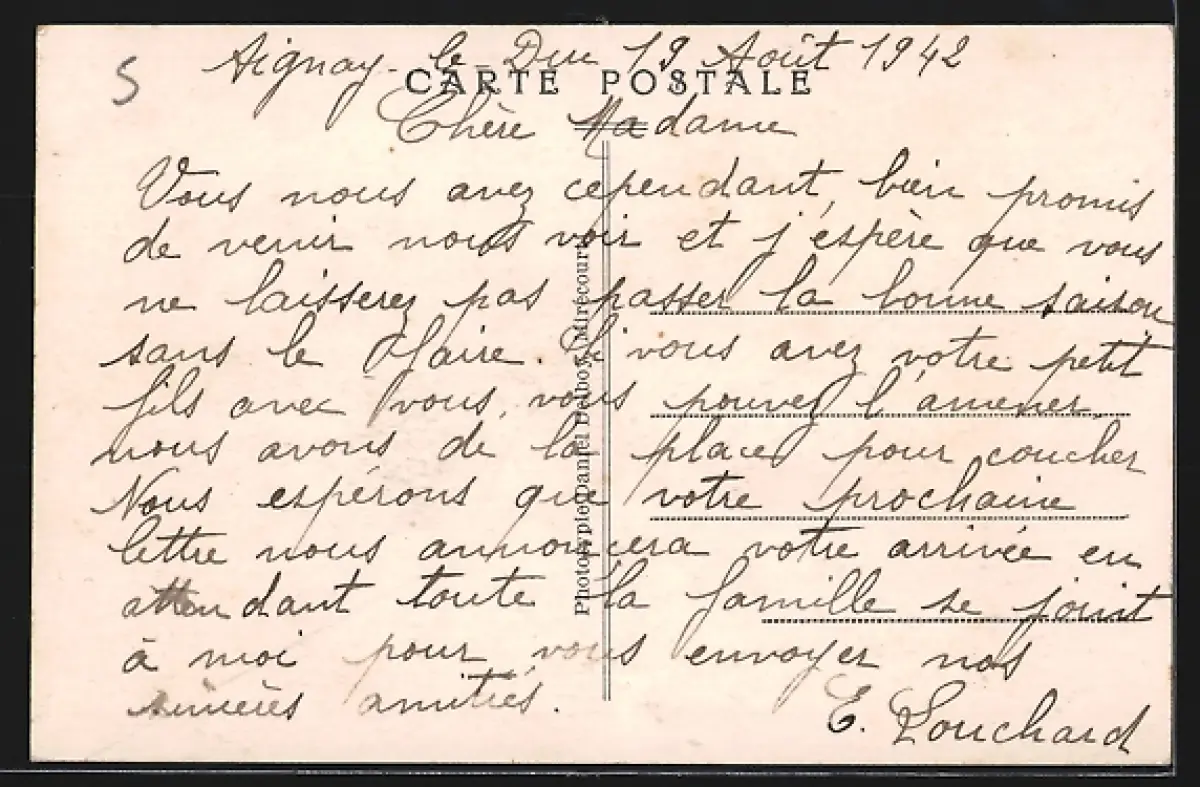 5
Aignay-le-Duc 19 Août 1942
CARTE POSTALE
Chère Madame
Vous nous avez cependant, bien promis
de venir nous voir et j'espère que vous
ne laisserez pas passer la bonne saison
sans le faire. Si vous avez votre petit
fils avec vous, vous pouvez l'amener,
nous avons de la place pour coucher
Nous espérons que votre prochaine
lettre nous annoncera votre arrivée en
attendant toute la famille se joint
à moi pour vous envoyer nos
sincères amitiés.
E. Louchard
Phototypie Daniel Delboy, Mirecourt